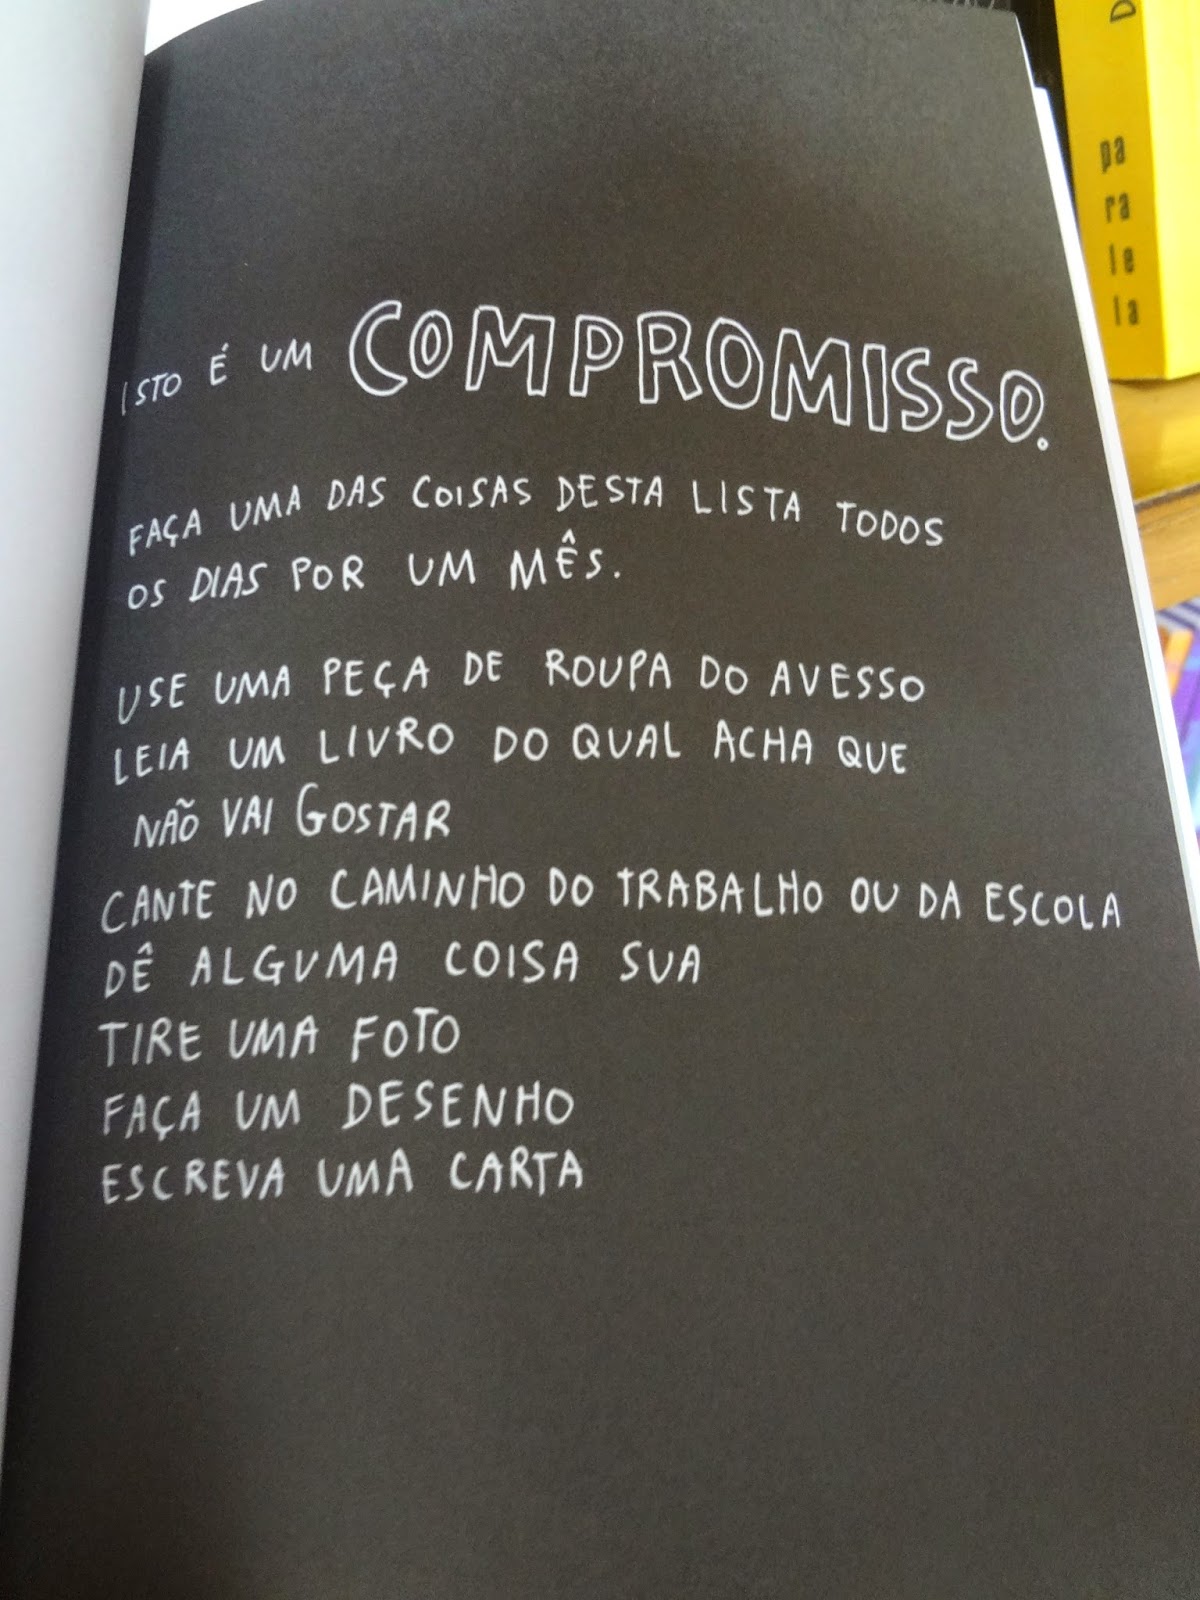 ISTO É UM COMPROMISSO.
FAÇA UMA DAS COISAS DESTA LISTA TODOS
OS DIAS POR UM MÊS.
USE UMA PEÇA DE ROUPA DO AVESSO
LEIA UM LIVRO DO QUAL ACHA QUE
NÃO VAI GOSTAR
CANTE NO CAMINHO DO TRABALHO OU DA ESCOLA
DÊ ALGUMA COISA SUA
TIRE UMA FOTO
FAÇA UM DESENHO
ESCREVA UMA CARTA
D
pa
ra
le
la